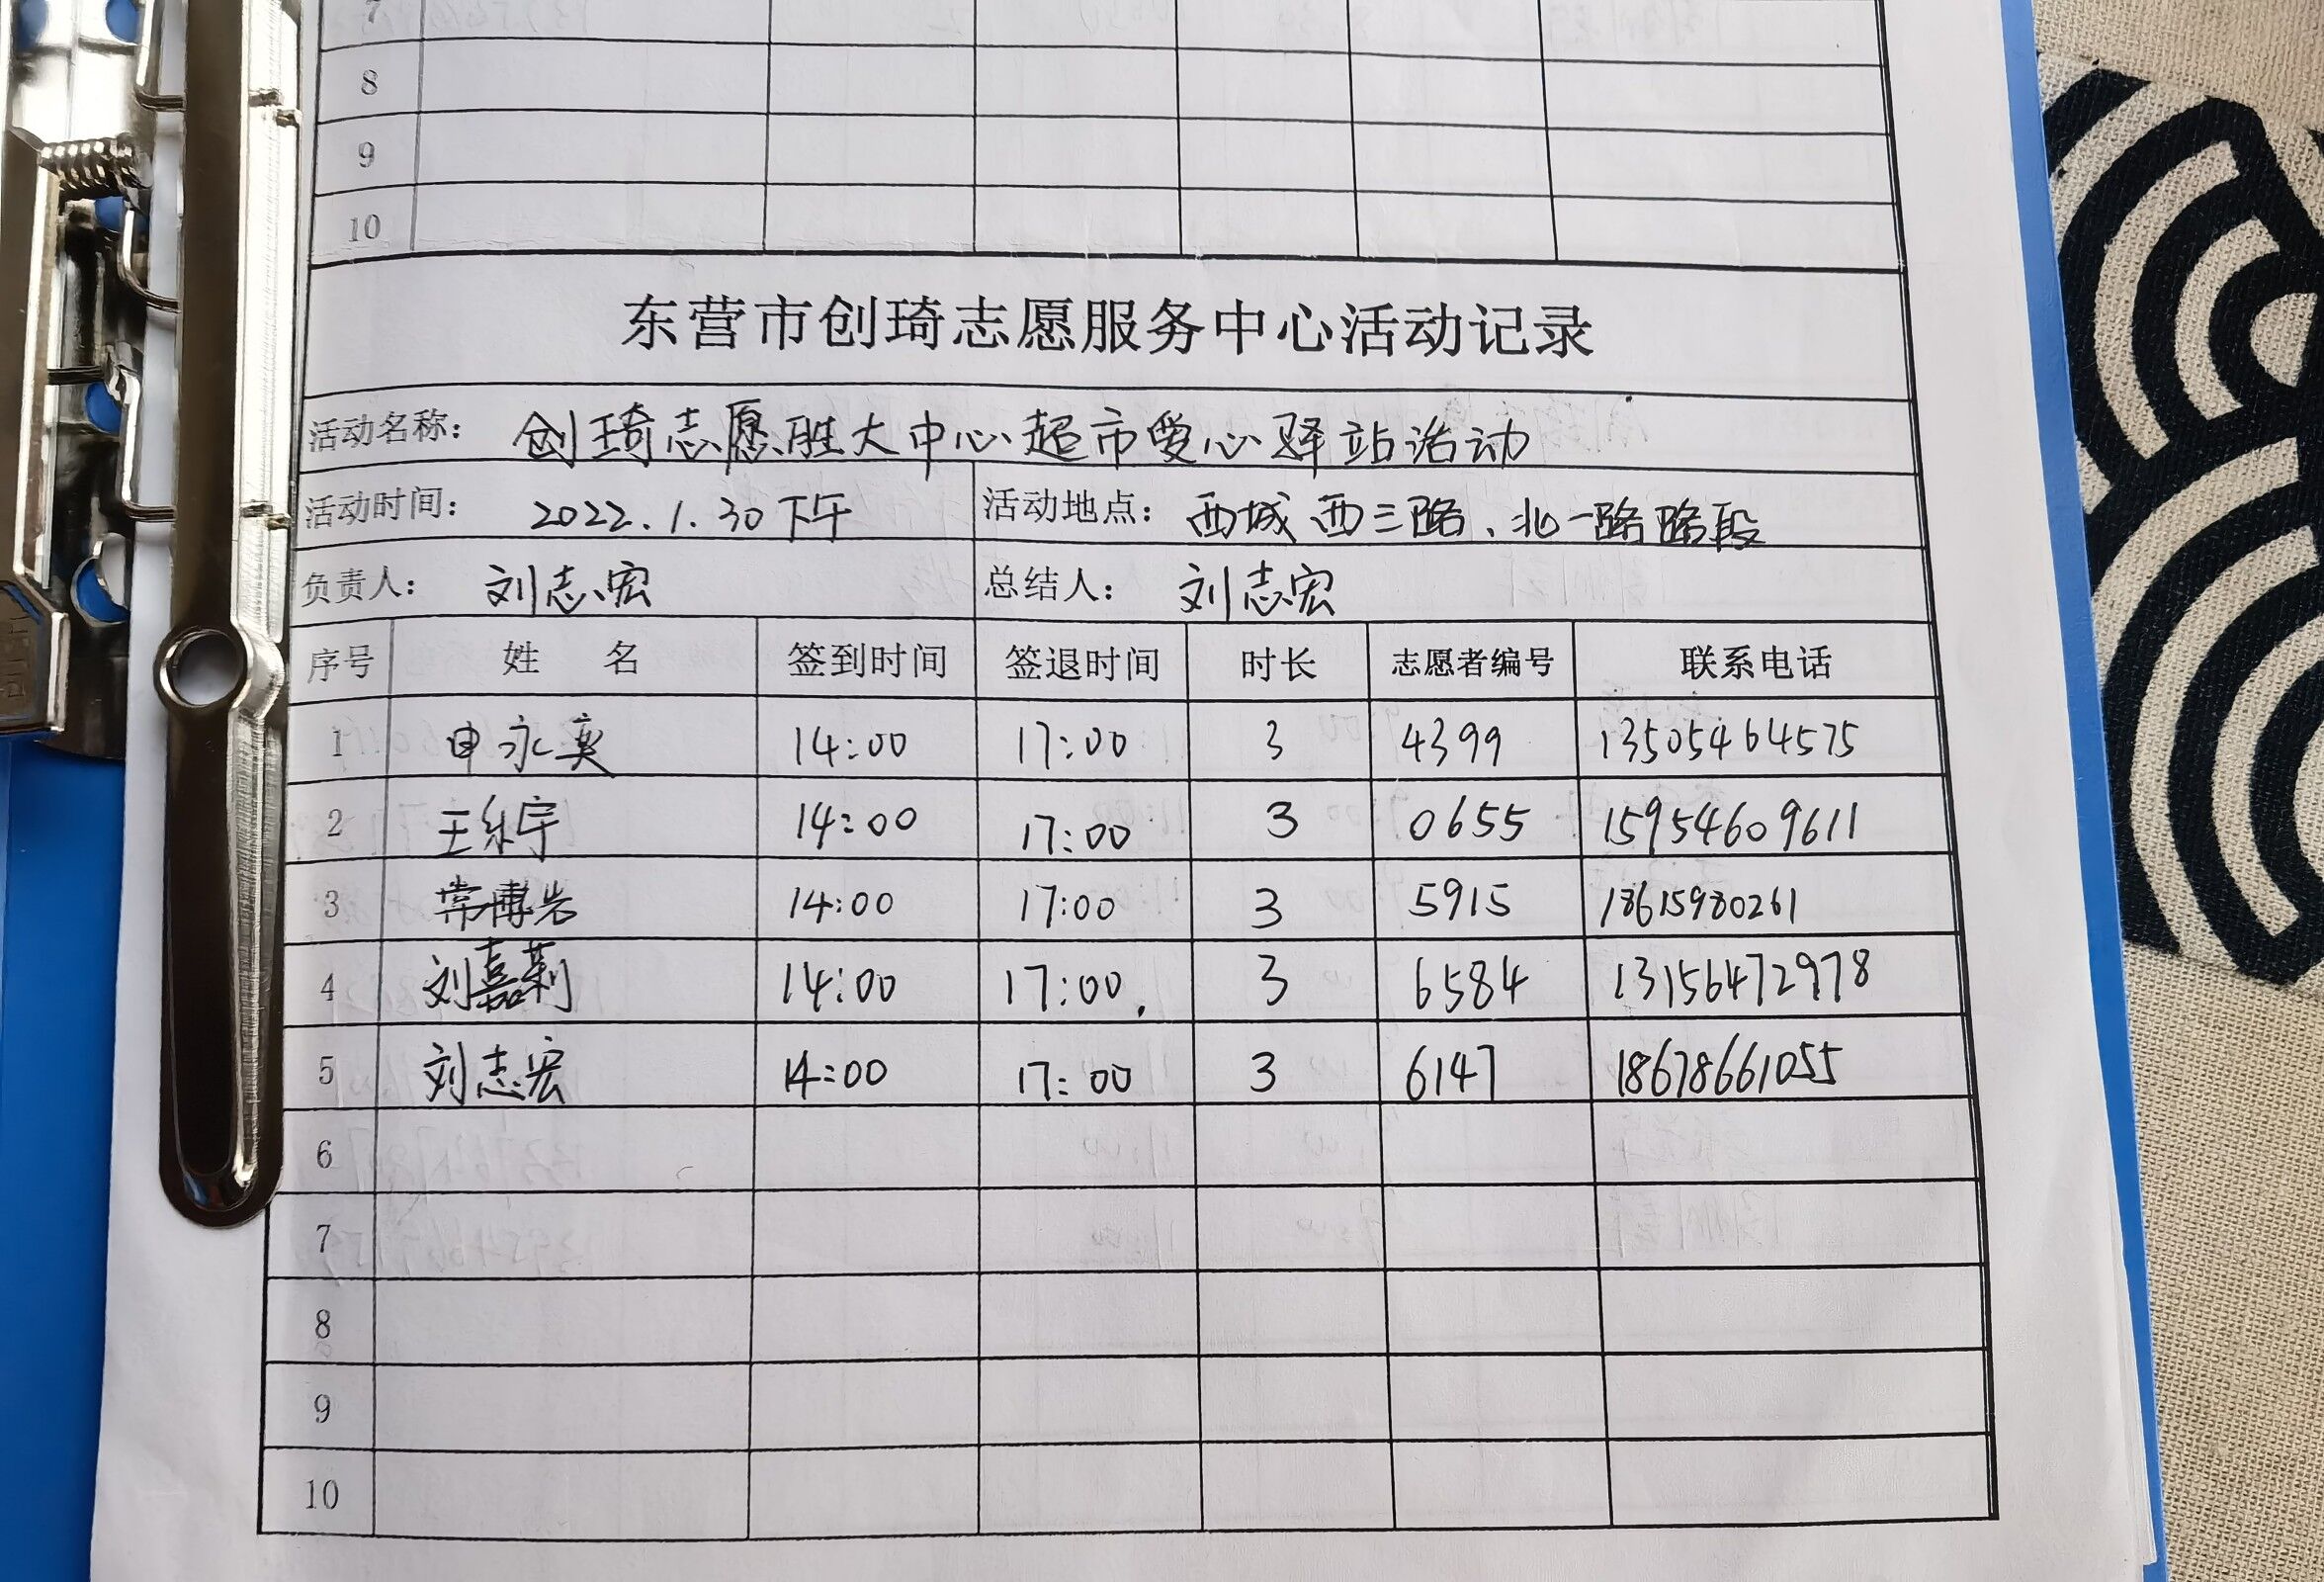 7
8
9
10
东营市创琦志愿服务中心活动记录
活动名称： 创琦志愿胜大中心超市爱心驿站活动
活动时间： 2022.1.30下午 活动地点： 西城西三路、北一路路段
负责人： 刘志宏 总结人： 刘志宏
序号 姓 名 签到时间 签退时间 时长 志愿者编号 联系电话
1 申永奕 14:00 17:00 3 4399 13505464575
2 14:00 17:00 3 0655 15954609611
3 常博岩 14:00 17:00 3 5915 18615980261
4 刘嘉莉 14:00 17:00. 3 6584 13156472978
5 刘志宏 14:00 17:00 3 6147 18678661055
6
7
8
9
10